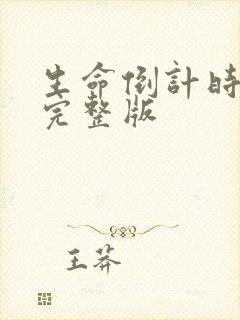 生命倒計時
完整版
王莽